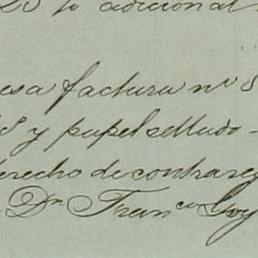 adicional
esa factura nº 8
y papel sellado -
derecho de contrareg
Dn Franco Goy